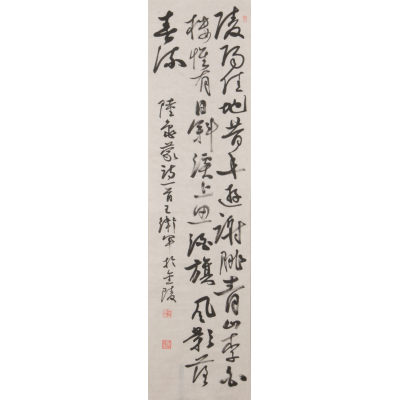 陵阳佳地昔年游谢朓青山李白
楼惟有日斜溪上思酒旗风影落
春流
陆龟蒙诗一首王卫军于金陵